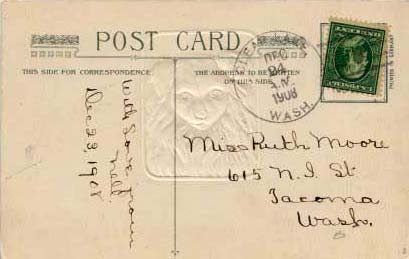 POST CARD
THIS SIDE FOR CORRESPONDENCE
THE ADDRESS TO BE WRITTEN
ON THIS SIDE
DEC
24
1908
WASH.
With Love from
Nell
Dec 23, 1908
Miss Ruth Moore
615 N. I. St
Tacoma
Wash.